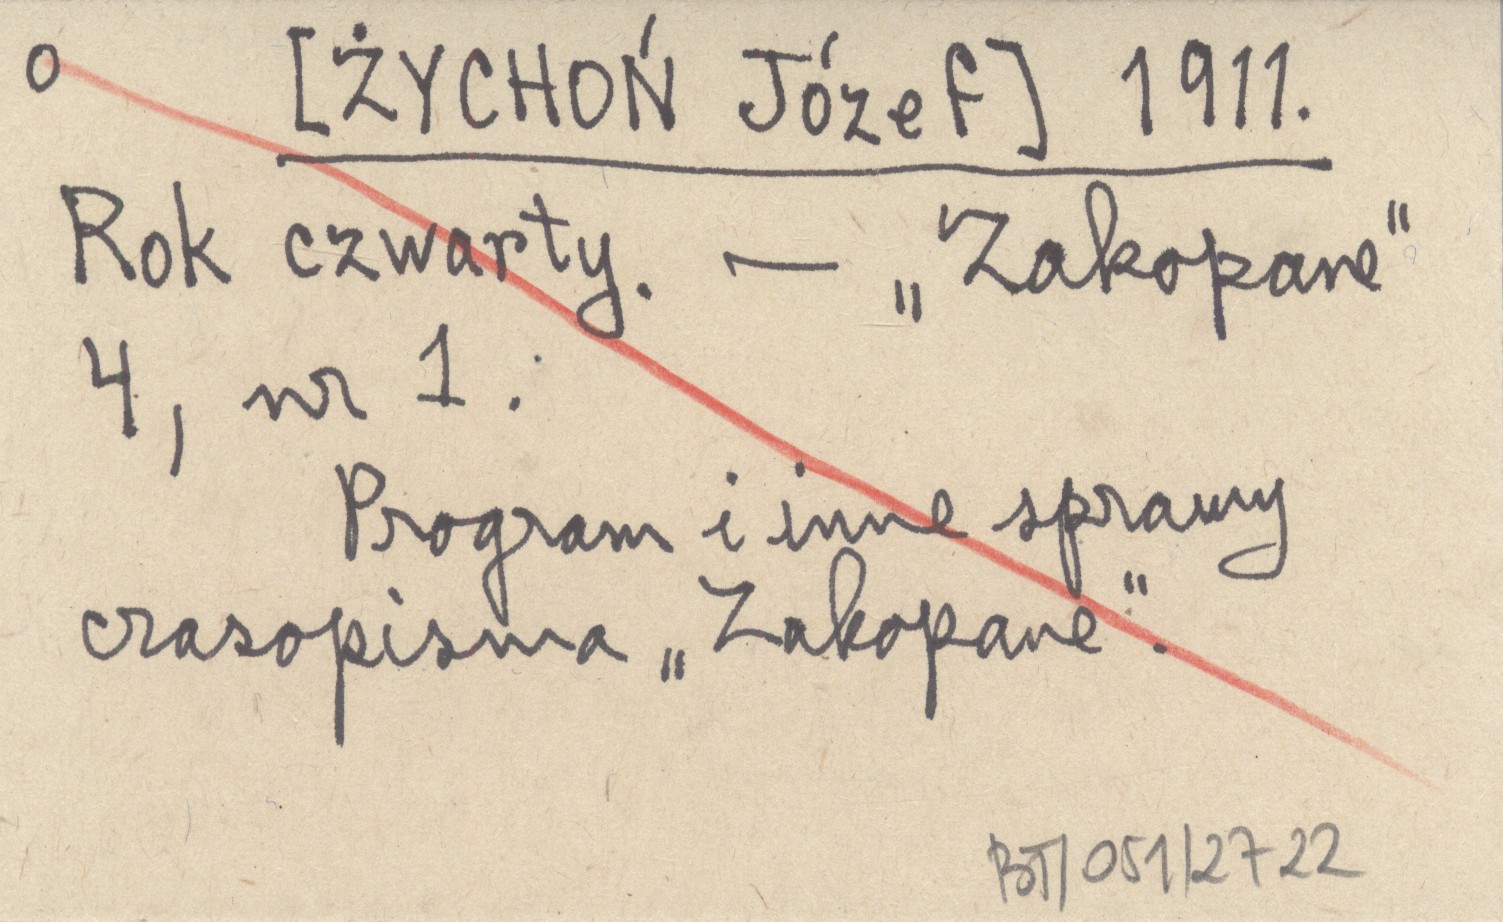 o [ŻYCHOŃ Józef] 1911.
Rok czwarty. — „Zakopane"
4, nr 1.
Program i inne sprawy
czasopisma „Zakopane".
BT/051/2722